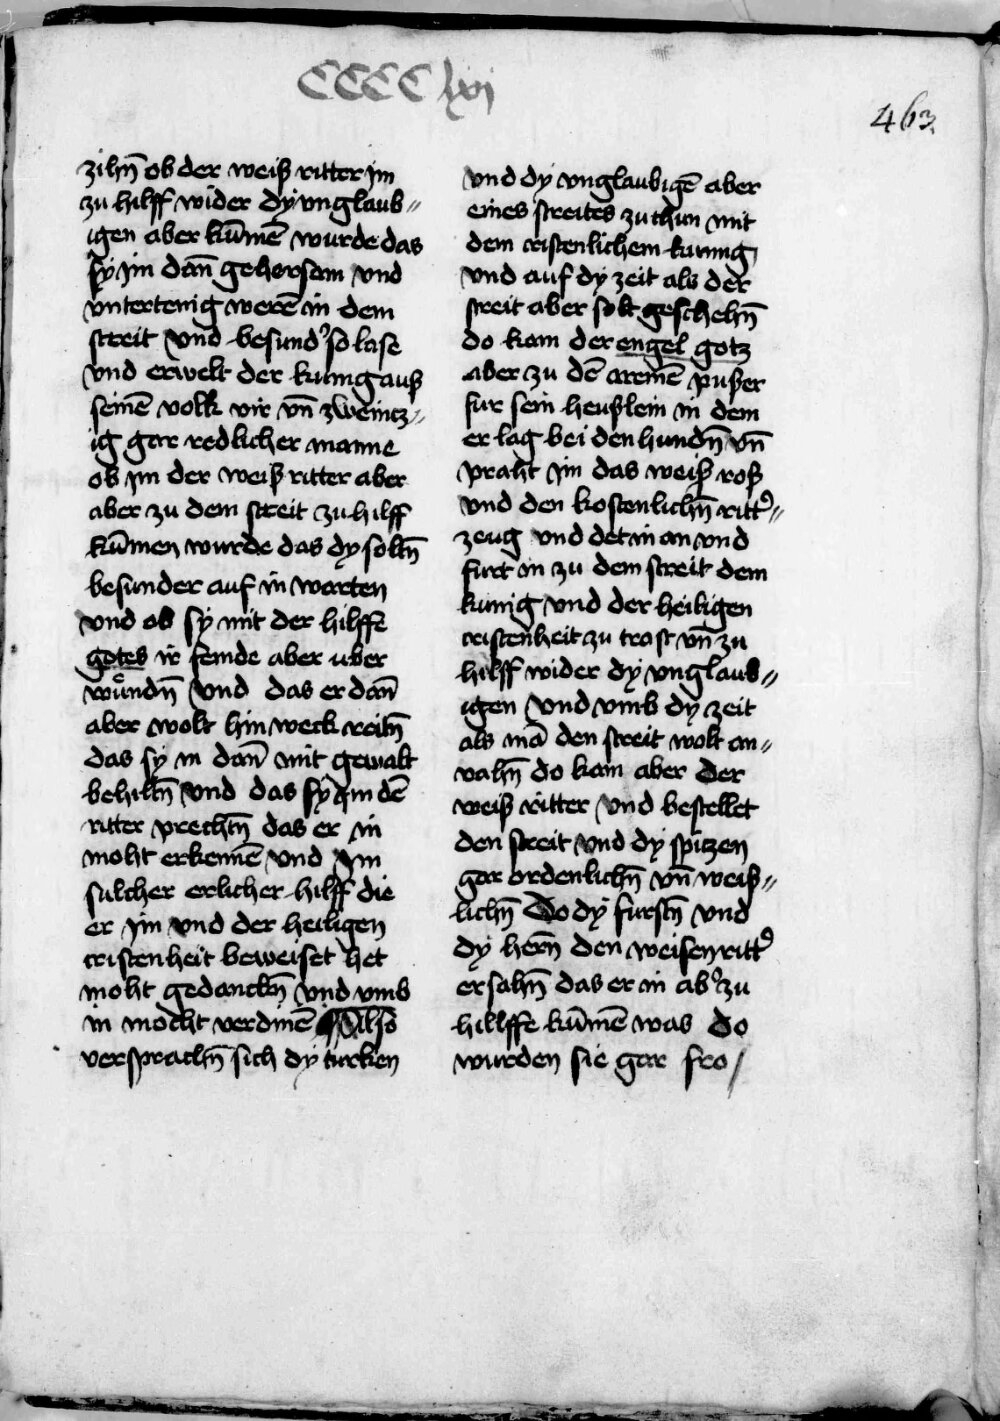 CCCC lxj
463.
zilñ ob der weiß ritter jm
zu hilff wider dÿ vnglaub〃
igen aber kūmē wurde das
sy jm dañ gehorsam vnd
vntertenig werē in dem
streit vnd besundˀ so lase
vnd erwelt der kunig auß
seinē volk vir vñ zweincz〃
ig gar redlicher manne
ob jm der weiß ritter aber
aber zu dem streit zu hilff
kūmen wurde das dy soltñ
besunder auf in warten
vnd ob sy mit der hilffe
gotes ir feinde aber uber
wůndñ vnd das er dañ
aber wolt hin weck reitñ
das sy in dañ mit gewalt
behiltñ vnd das sy jm dē
ritter prechtñ das er in
moht erkennē vnd jm
sulcher erlicher hilff die
er jm vnd der heiligen
cristenheit beweiset het
moht gedanckñ vnd vmb
in mocht verdinē Also
versprachñ sich dÿ turken
vnd dÿ vnglaubigē aber
eines streites zu thun mit
dem cristenlichem kunig
vnd auf dÿ zeit als der
streit aber solt geschehñ
do kam der engel gotz
aber zu dē aremē pußer
fur sein heußlein in dem
er lag bei den hundñ vñ
praht jm das weiß roß
vnd den kostenlichñ rittˀ〃
zeug vnd det in an vnd
furt in zu dem streit dem
kunig vnd der heiligen
cristenheit zu trost vñ zu
hilff wider dÿ vnglaub〃
igen vnd vmb dÿ zeit
als mā den streit wolt an〃
vahñ do kam aber der
weiß ritter vnd bestellet
den streit vnd dÿ spitzen
gar ordenlichñ vñ weiß〃
lichñ Do dÿ furstñ vnd
dÿ herñ den weisen rittˀ
ersahñ das er in abˀ zu
hillffe kūmē was do
wurden sie gar fro /